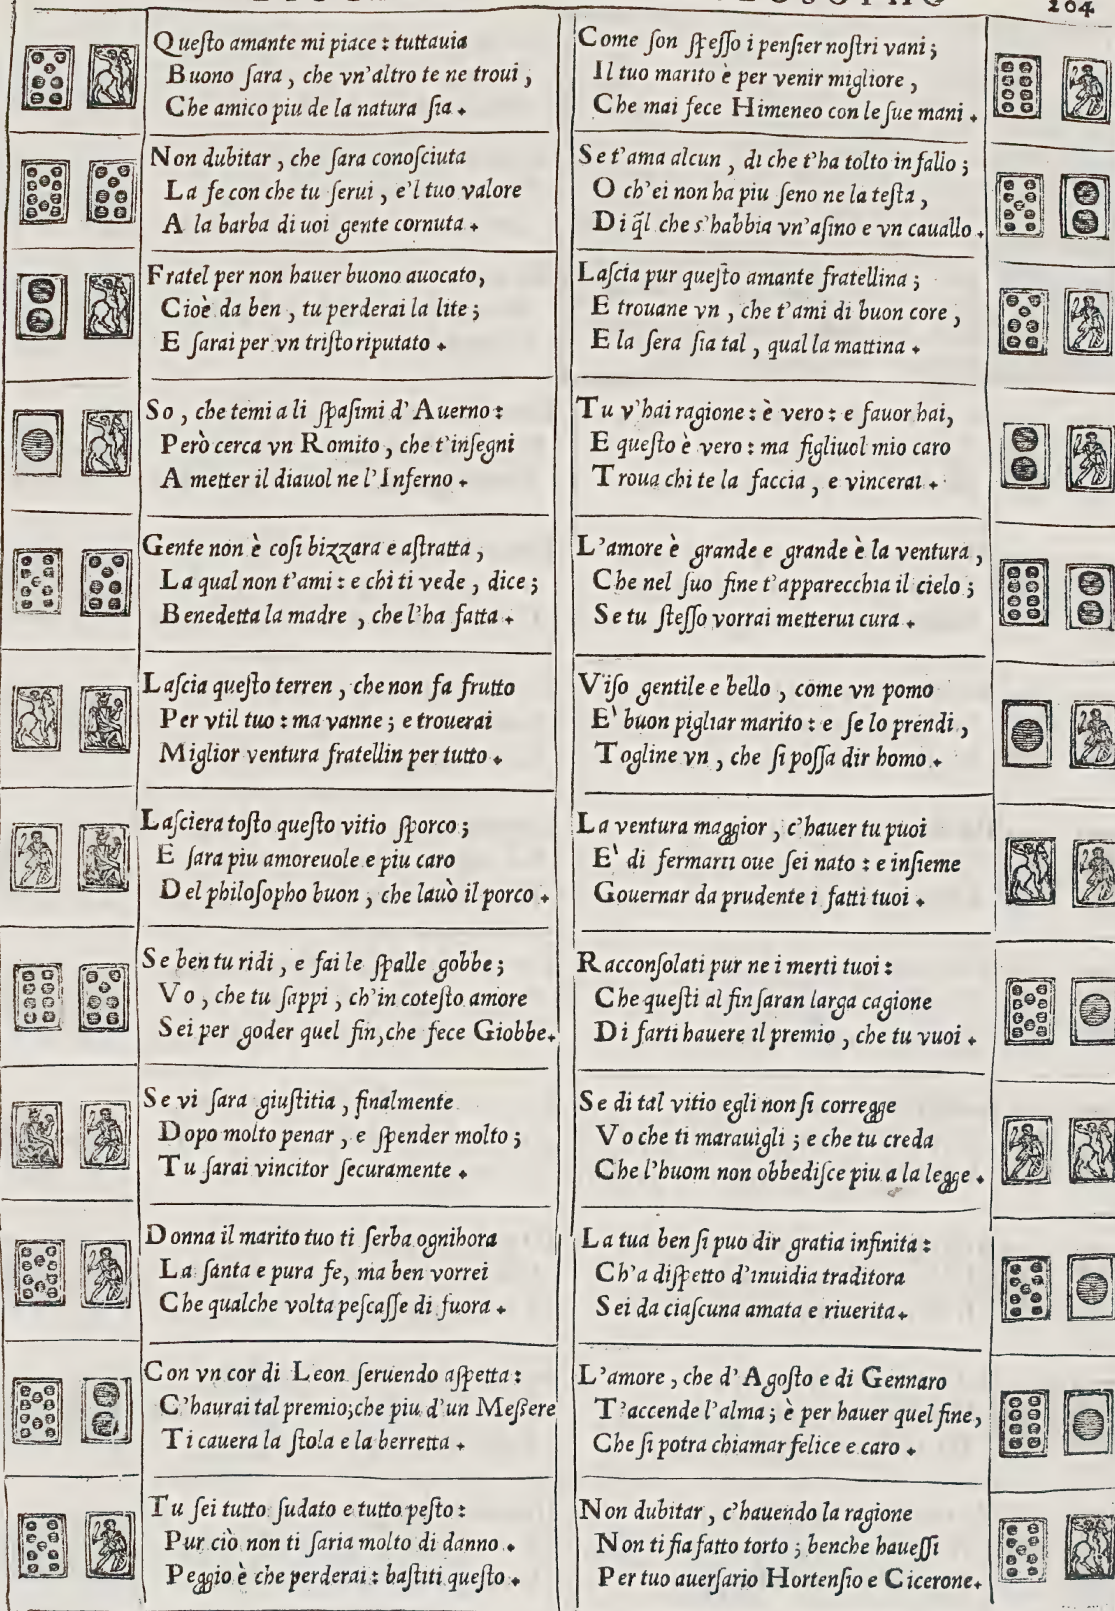 204
Queſto amante mi piace : tuttauia
Buono ſara, che vn'altro te ne troui,
Che amico piu de la natura ſia.
Non dubitar, che ſara conoſciuta
La fe con che tu ſerui, e'l tuo valore
A la barba di uoi gente cornuta.
Fratel per non hauer buono auocato,
Cioè da ben, tu perderai la lite;
E ſarai per vn triſto riputato.
So, che temi a li ſpaſimi d'Auerno:
Però cerca vn Romito, che t'inſegni
A metter il diauol ne l'Inferno.
Gente non è coſi bizzara e aſtratta,
La qual non t'ami : e chi ti vede, dice;
Benedetta la madre, che l'ha fatta.
Laſcia queſto terren, che non fa frutto
Per vtil tuo : ma vanne; e trouerai
Miglior ventura fratellin per tutto.
Laſciera toſto queſto vitio ſporco;
E ſara piu amoreuole e piu caro
Del philoſopho buon, che lauò il porco.
Se ben tu ridi, e fai le ſpalle gobbe;
Vo, che tu ſappi, ch'in coteſto amore
Sei per goder quel fin, che fece Giobbe.
Se vi ſara giuſtitia, finalmente
Dopo molto penar, e ſpender molto;
Tu ſarai vincitor ſecuramente.
Donna il marito tuo ti ſerba ognihora
La ſanta e pura fe, ma ben vorrei
Che qualche volta peſcaſſe di fuora.
Con vn cor di Leon ſeruendo aſpetta:
C'haurai tal premio; che piu d'un Meſsere
Ti cauera la ſtola e la berretta.
Tu ſei tutto ſudato e tutto peſto:
Pur ciò non ti ſaria molto di danno.
Peggio è che perderai : baſtiti queſto.
Come ſon ſpeſſo i penſier noſtri vani;
Il tuo marito è per venir migliore,
Che mai fece Himeneo con le ſue mani.
Se t'ama alcun, di che t'ha tolto in fallo;
O ch'ei non ha piu ſeno ne la teſta,
Di q̃l che s'habbia vn'aſino e vn cauallo.
Laſcia pur queſto amante fratellina;
E trouane vn, che t'ami di buon core,
E la ſera ſia tal, qual la mattina.
Tu v'hai ragione : è vero : e fauor hai,
E queſto è vero : ma figliuol mio caro
Troua chi te la faccia, e vincerai.
L'amore è grande e grande è la ventura,
Che nel ſuo fine t'apparecchia il cielo;
Se tu ſteſſo vorrai metterui cura.
Viſo gentile e bello, come vn pomo
E' buon pigliar marito : e ſe lo prendi,
Togline vn, che ſi poſſa dir homo.
La ventura maggior, c'hauer tu puoi
E' di fermarti oue ſei nato : e inſieme
Gouernar da prudente i fatti tuoi.
Racconſolati pur ne i merti tuoi:
Che queſti al fin ſaran larga cagione
Di farti hauere il premio, che tu vuoi.
Se di tal vitio egli non ſi corregge
Vo che ti marauigli; e che tu creda
Che l'huom non obbediſce piu a la legge.
La tua ben ſi puo dir gratia infinita:
Ch'a diſpetto d'inuidia traditora
Sei da ciaſcuna amata e riuerita.
L'amore, che d'Agoſto e di Gennaro
T'accende l'alma; è per hauer quel fine,
Che ſi potra chiamar felice e caro.
Non dubitar, c'hauendo la ragione
Non ti fia fatto torto; benche haueſſi
Per tuo auerſario Hortenſio e Cicerone.